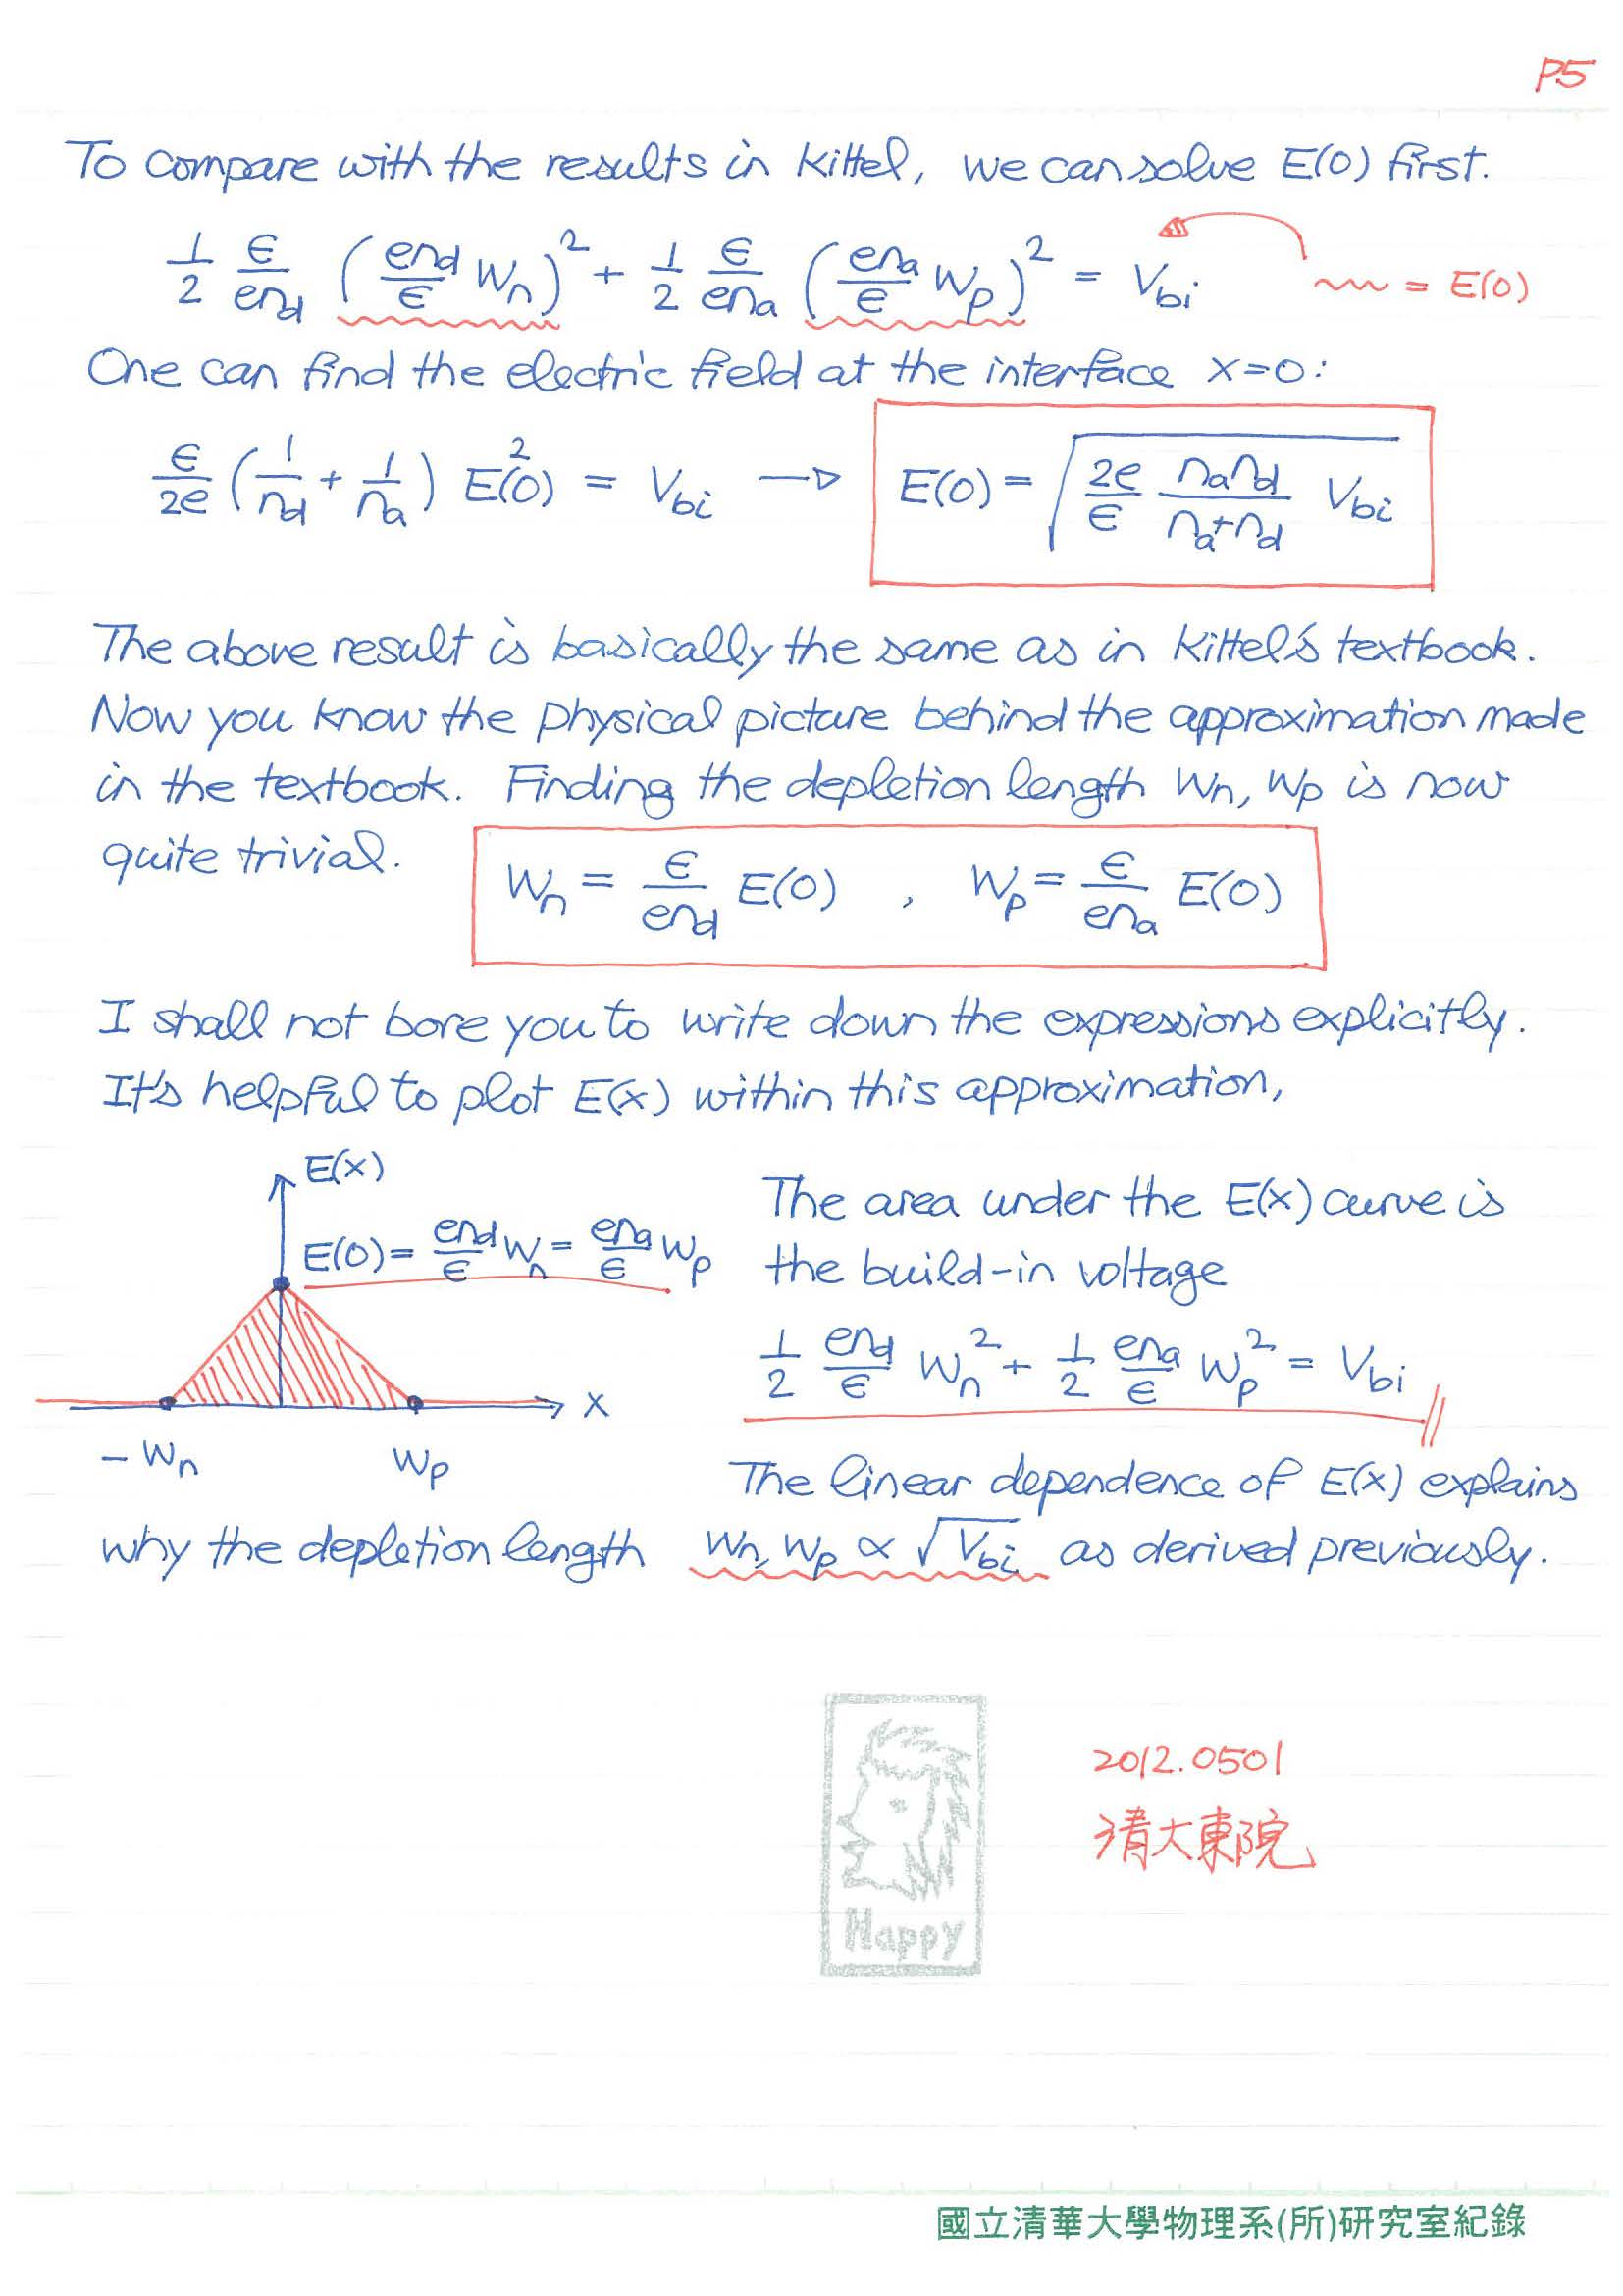 P5
To compare with the results in Kittel, we can solve E(0) first.
1/2 ϵ/(en_d) (en_d/ϵ W_n)² + 1/2 ϵ/(en_a) (en_a/ϵ W_p)² = V_bi 〰 = E(0)
One can find the electric field at the interface x=0:
ϵ/2e (1/n_d + 1/n_a) E²(0) = V_bi → E(0) = √(2e/ϵ n_a n_d/(n_a+n_d) V_bi)
The above result is basically the same as in Kittel's textbook.
Now you know the physical picture behind the approximation made
in the textbook. Finding the depletion length W_n, W_p is now
quite trivial. W_n = ϵ/(en_d) E(0) , W_p = ϵ/(en_a) E(0)
I shall not bore you to write down the expressions explicitly.
It's helpful to plot E(x) within this approximation,
E(x)
E(0) = en_d/ϵ W_n = en_a/ϵ W_p
x
-W_n W_p
The area under the E(x) curve is
the build-in voltage
1/2 en_d/ϵ W_n² + 1/2 en_a/ϵ W_p² = V_bi
The linear dependence of E(x) explains
why the depletion length W_n, W_p ∝ √V_bi as derived previously.
Happy
2012.0501
清大東院
國立清華大學物理系(所)研究室紀錄